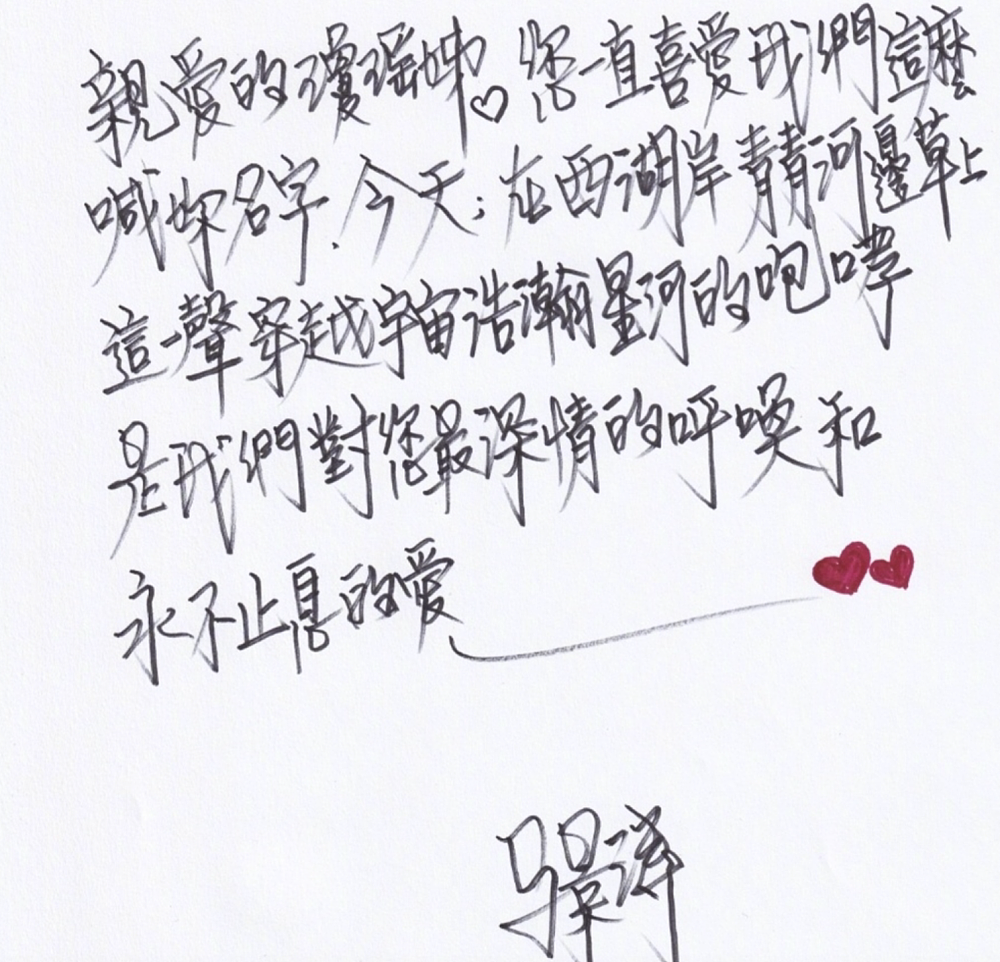 親愛的瓊瑤姊♡您一直喜愛我們這麼
喊妳名字.今天;在西湖岸青青河邊草上
這一聲穿越宇宙浩瀚星河的咆哮
是我們對您最深情的呼喚和
永不止息的愛
景洋